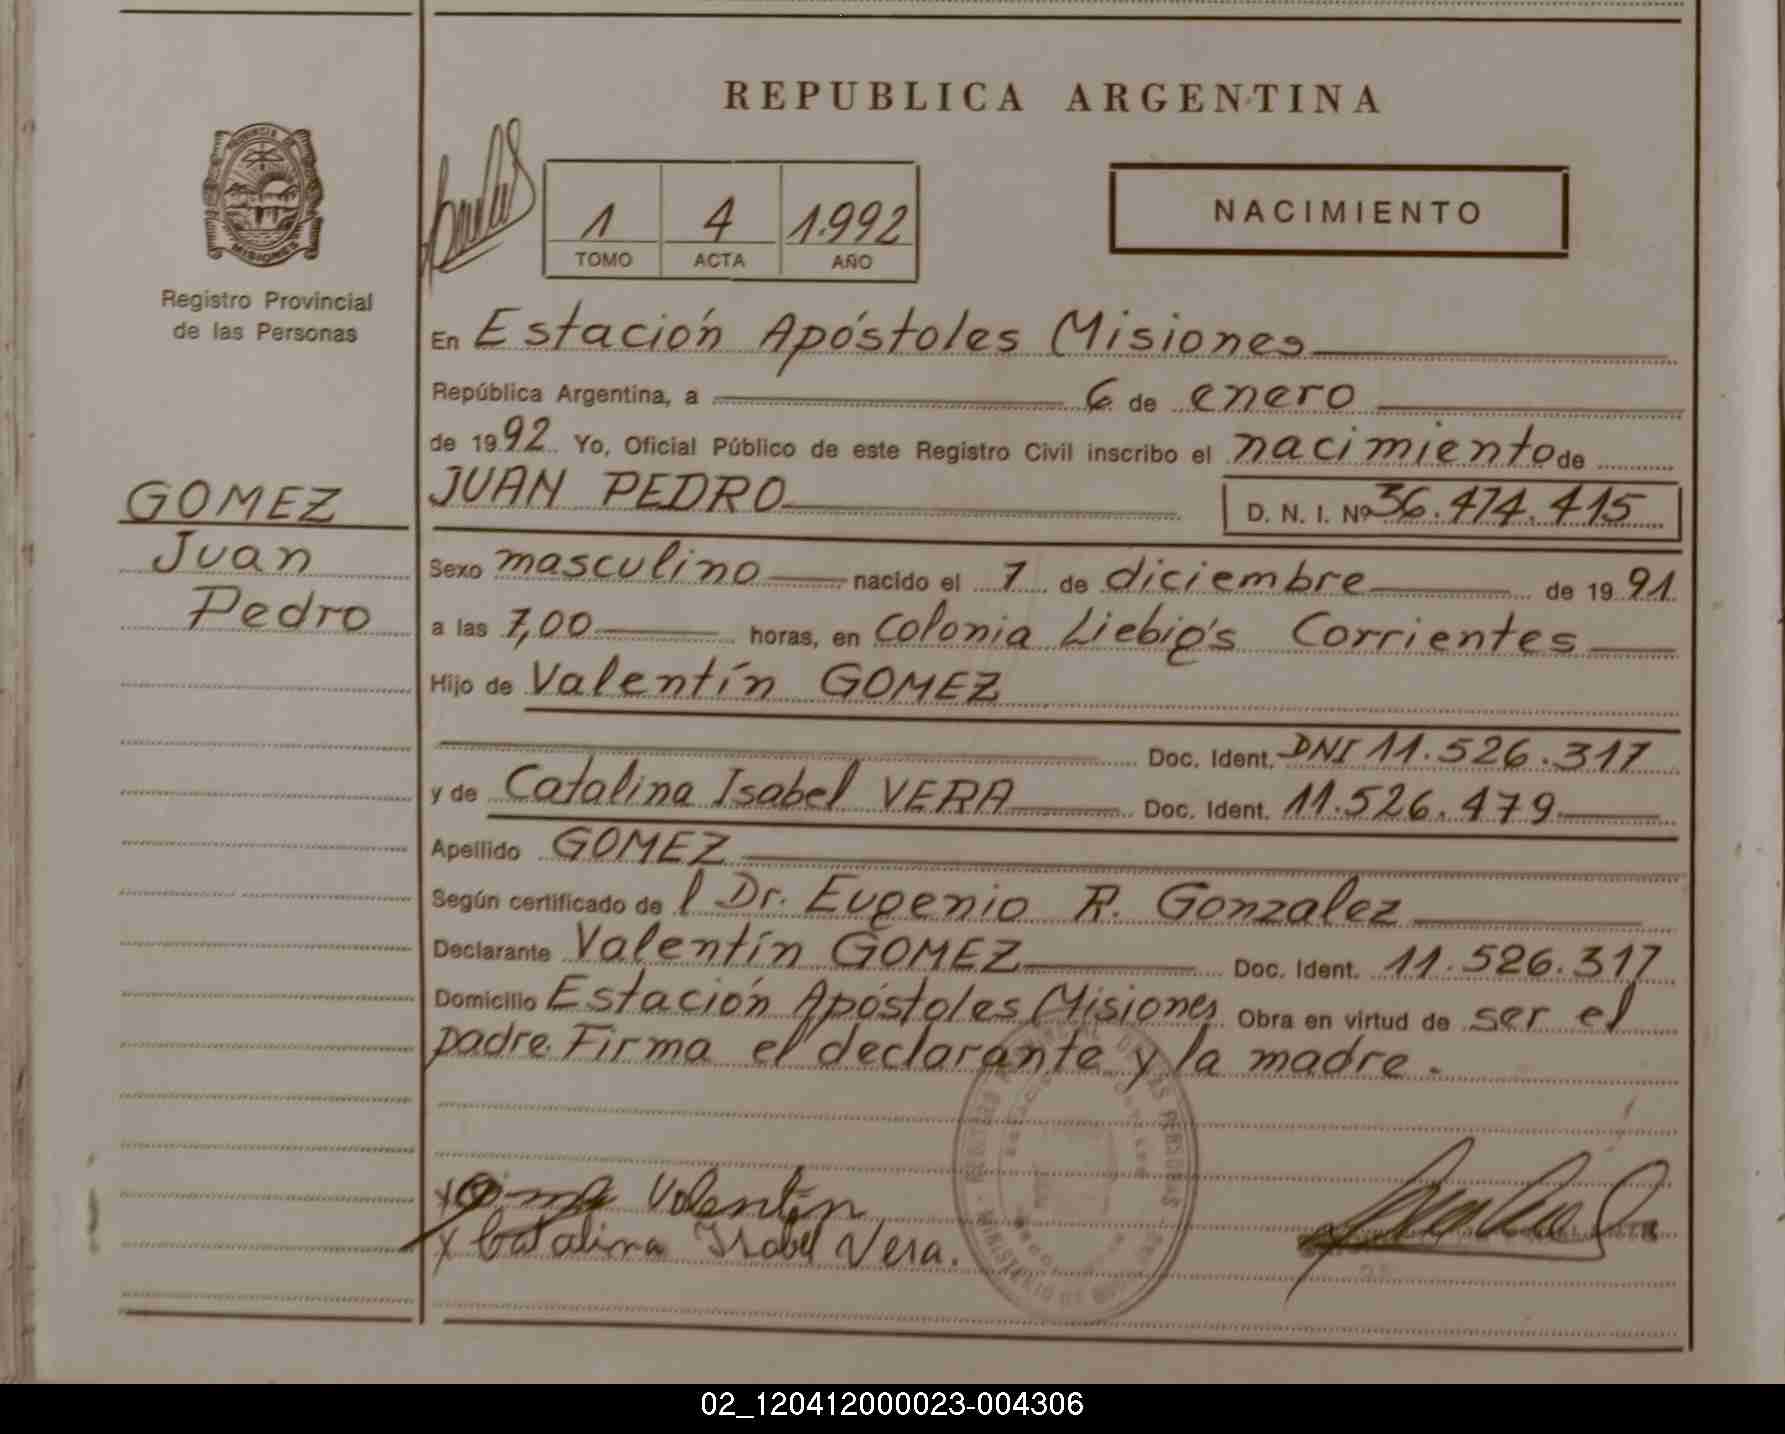 REPUBLICA ARGENTINA
PROVINCIA DE
MISIONES
Registro Provincial
de las Personas
1 4 1.992
TOMO ACTA AÑO
NACIMIENTO
En Estación Apóstoles Misiones
República Argentina, a 6 de enero
de 1992 Yo, Oficial Público de este Registro Civil inscribo el nacimiento de
JUAN PEDRO D. N. I. Nº 36.474.415
GOMEZ
Juan
Pedro
Sexo masculino nacido el 7 de diciembre de 1991
a las 7,00 horas, en Colonia Liebig's Corrientes
Hijo de Valentín GOMEZ
Doc. Ident. DNI 11.526.317
y de Catalina Isabel VERA Doc. Ident. 11.526.479
Apellido GOMEZ
Según certificado de l Dr. Eugenio R. Gonzalez
Declarante Valentín GOMEZ Doc. Ident. 11.526.317
Domicilio Estación Apóstoles Misiones Obra en virtud de ser el
padre. Firma el declarante y la madre.
x Valentín
x Catalina Isabel Vera.
02_120412000023-004306